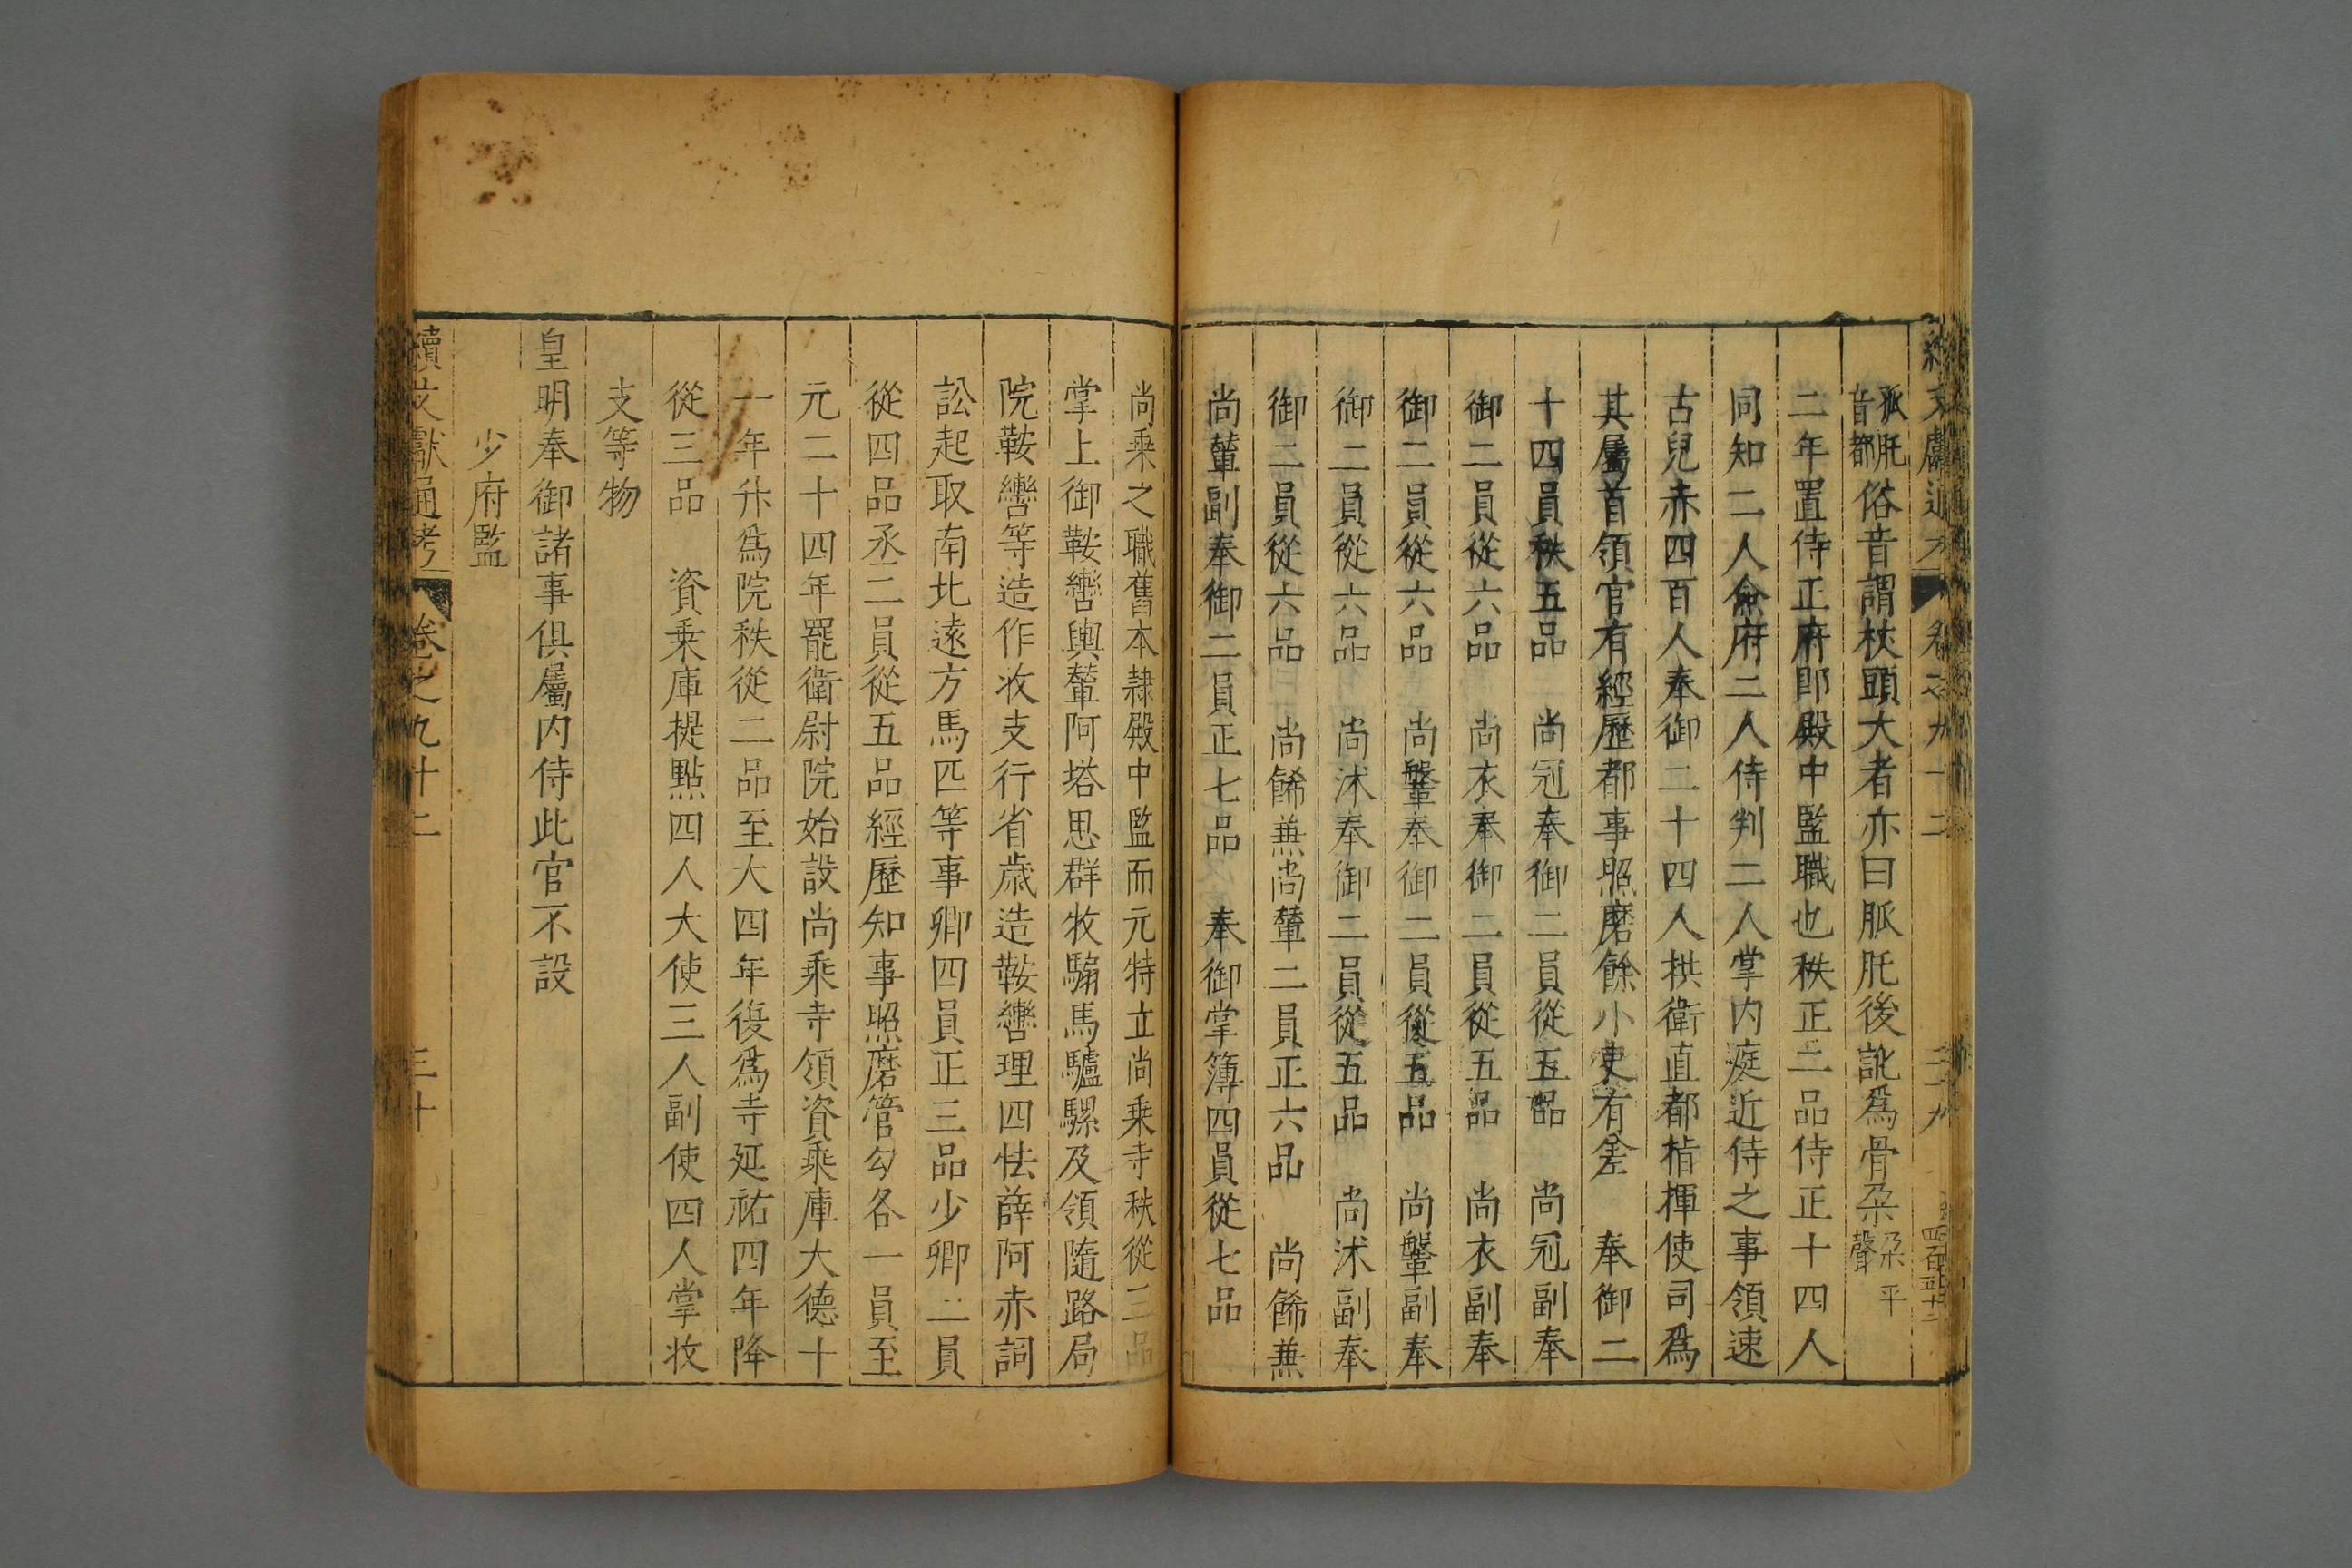 續文獻通考 卷之九十二 二十九
胍肫音都俗音謂杖頭大者亦曰胍肫後訛為骨朵朵平聲
二年置侍正府卽殿中監職也秩正二品侍正十四人
同知二人僉府二人侍判二人掌内庭近侍之事領速
古兒赤四百人奉御二十四人拱衛直都指揮使司爲
其屬首領官有經歷都事照磨餘小吏有差 奉御二
十四員秩五品 尚冠奉御二員從五品 尚冠副奉
御二員從六品 尚衣奉御二員從五品 尚衣副奉
御二員從六品 尚鞶奉御二員從五品 尚鞶副奉
御二員從六品 尚沭奉御二員從五品 尚沭副奉
御二員從六品 尚餙兼尚輦二員正六品 尚餙兼
尚輦副奉御二員正七品 奉御掌簿四員從七品
尚乗之職舊本隷殿中監而元特立尚乗寺秩從三品
掌上御鞍轡輿輦阿塔思群牧騸馬驢騾及領隨路局
院鞍轡等造作收支行省歲造鞍轡理四怯薛阿赤詞
訟起取南北遠方馬匹等事卿四員正三品少卿二員
從四品丞二員從五品經歷知事照磨管勾各一員至
元二十四年罷衛尉院始設尚乘寺領資乘庫大德十
一年升爲院秩從二品至大四年復爲寺延祐四年降
從三品 資乘庫提點四人大使三人副使四人掌收
支等物
皇明奉御諸事俱屬内侍此官不設
少府監
續文獻通考 卷之九十二 三十